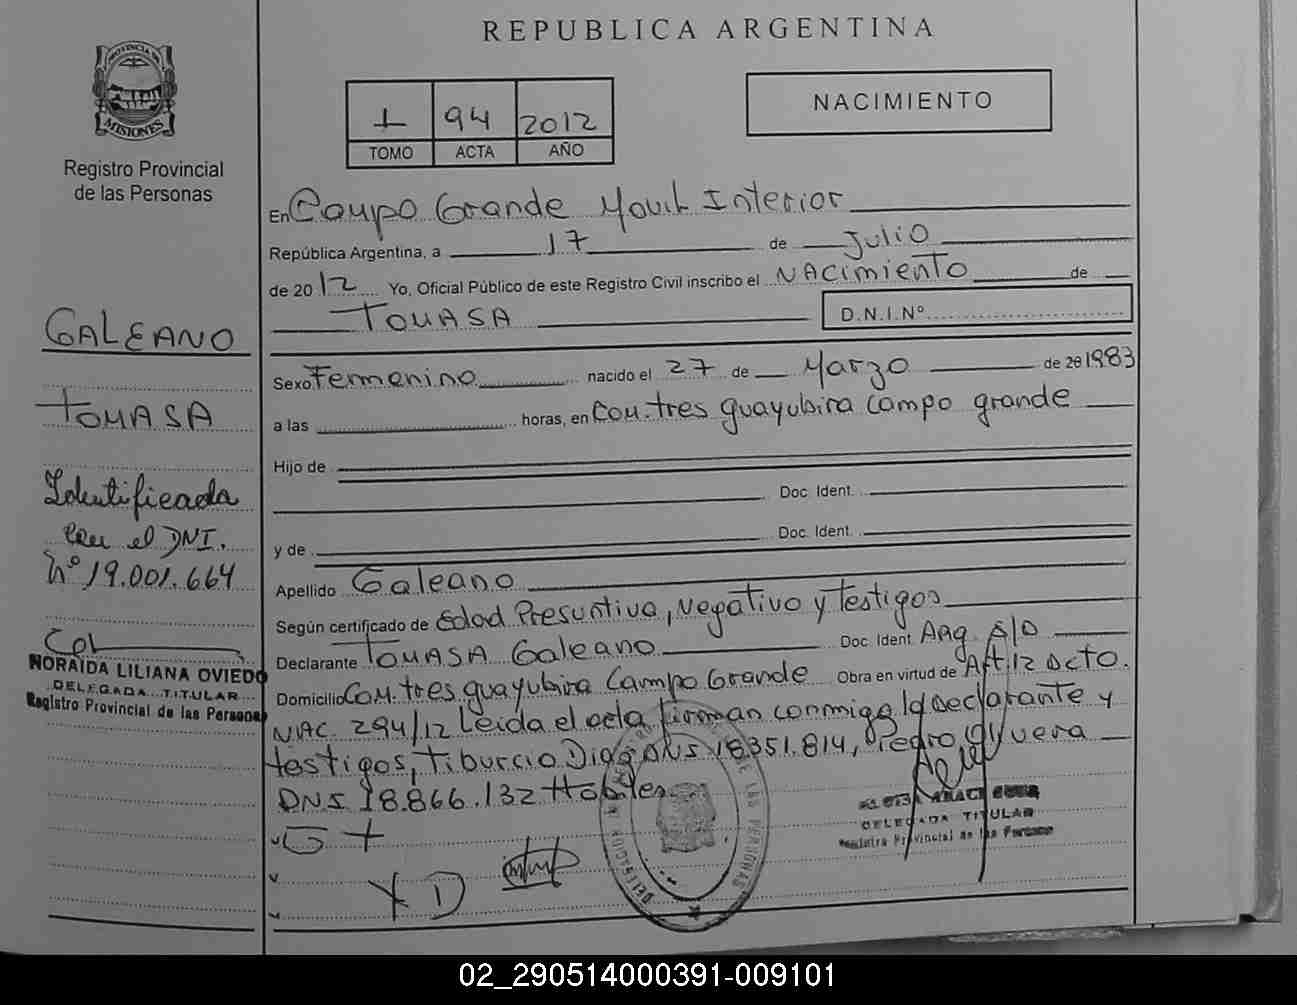 REPUBLICA ARGENTINA
PROVINCIA DE
MISIONES
Registro Provincial
de las Personas
1 94 2012
TOMO ACTA AÑO
NACIMIENTO
En Campo Grande Movil Interior
República Argentina, a 17 de Julio
de 2012 Yo, Oficial Público de este Registro Civil inscribo el NAcimiento de
TOMASA D.N.I.Nº
Sexo Femenino nacido el 27 de Marzo de 20 1983
a las horas, en Com. tres guayubira campo grande
Hijo de
Doc. Ident.
y de Doc. Ident.
Apellido Galeano
Según certificado de Edad Presuntiva, Negativo y Testigos
Declarante TOMASA Galeano Doc. Ident. Arg. S/D
Domicilio Com. tres guayubira Campo Grande Obra en virtud de Art. 12 Dcto.
NAC. 294/12 Leida el acta firman conmigo la Declarante y
testigos, Tiburcio DNI 18351.814, Pedro
DNI 18.866.132 Habiles
GALEANO
TOMASA
Identificada
con el DNI.
Nº 19.001.664
NORAIDA LILIANA OVIEDO
DELEGADA TITULAR
Registro Provincial de las Personas
DELEGADA TITULAR
Registro Provincial de las Personas
02_290514000391-009101